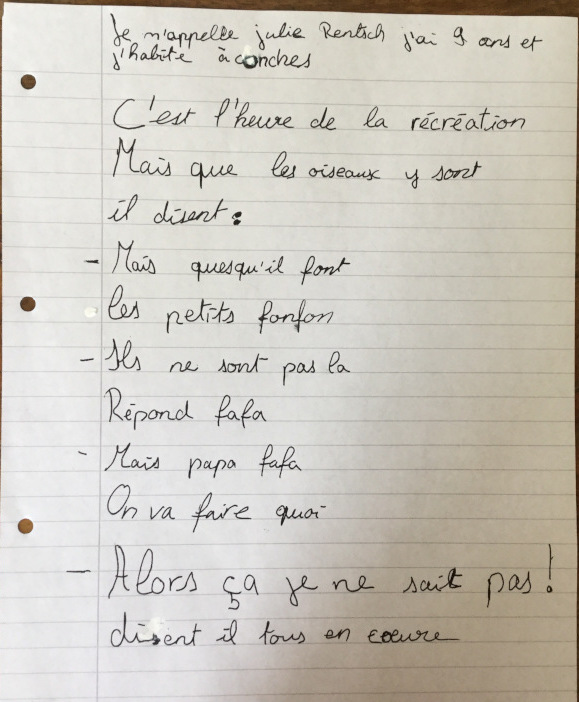 Je m'appelle julie Rentsch j'ai 9 ans et
j'habite à conches
C'est l'heure de la récréation
Mais que les oiseaux y sont
il disent :
- Mais quesqu'il font
les petits fonfon
- Ils ne sont pas la
Répond fafa
- Mais papa fafa
On va faire quoi
- Alors ça je ne sait pas !
disent il tous en coeure